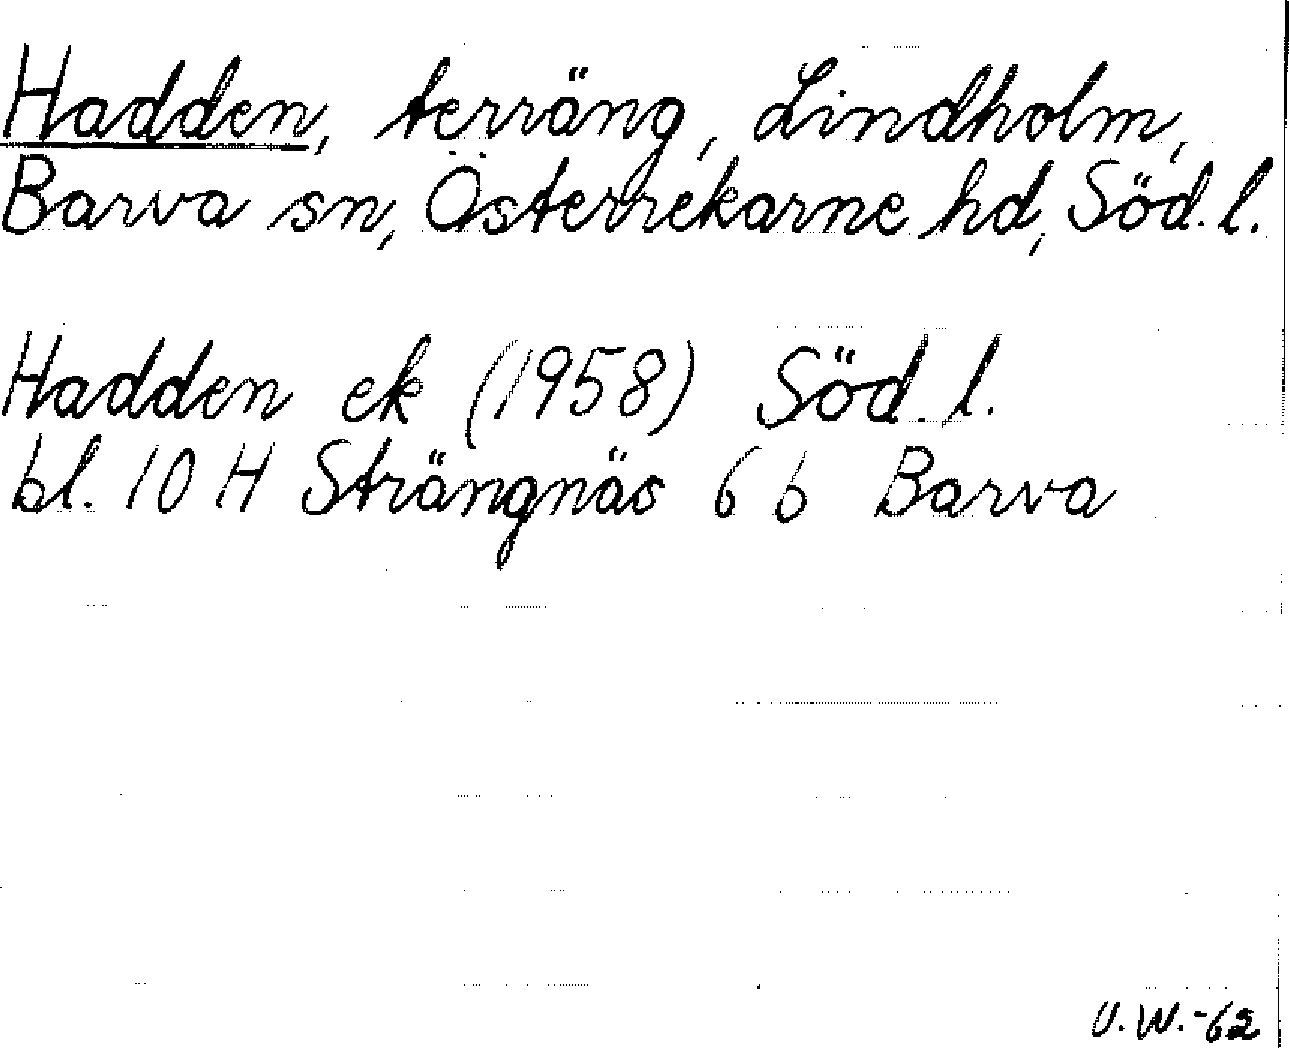 Hadden, terräng, Lindholm,
Barva sn, Österrekarne hd, Söd. l.
Hadden ek (1958) Söd. l.
bl. 10 H Strängnäs 6 b Barva
U. W. -62